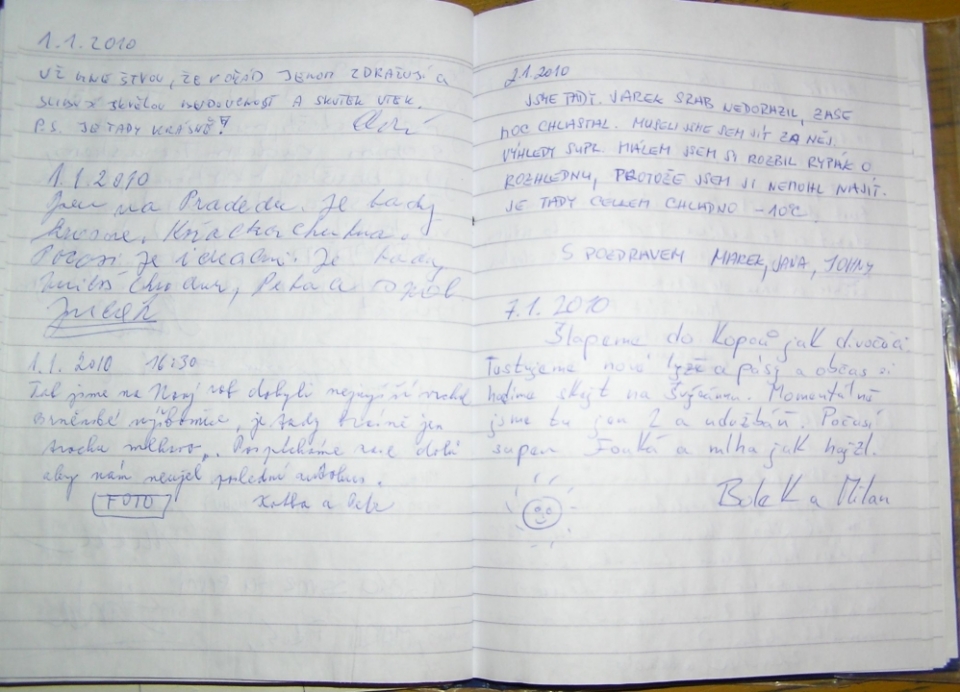 1.1.2010
UŽ MNE ŠTVOU, ŽE POŘÁD JENOM ZDRAŽUJÍ A
SLIBUJÍ A SKUTEK UTEK.
P.S. JE TADY KRÁSNĚ!
1.1.2010
Jsem na Pradědu. Je tady
Počasí je ideální. Je tady
1.1. 2010 16:30
Tak jsme na Nový rok dobyli nejvyšší vrchol
je tady krásně jen
trochu mlhavo. Pospícháme zase dolů
aby nám neujel poslední autobus.
FOTO
Katka a Petr
2.1.2010
JSME TADY. JAREK SZAB NEDORAZIL, ZASE
MOC CHLASTAL. MUSELI JSME SEM JÍT ZA NĚJ.
VÝHLEDY SUPR. MÁLEM JSEM SI ROZBIL RYPÁK O
ROZHLEDNU, PROTOŽE JSEM JI NEMOHL NAJÍT.
JE TADY CELKEM CHLADNO -10°C.
S POZDRAVEM MAREK, JANA, JOHNY
7.1.2010
Šlapeme do kopců jak divočáci
Testujeme nové lyže a pásy a občas si
hodíme skejt na Švýcárnu. Momentálně
jsme tu jen 2 a údržbář. Počasí
super Fouká a mlha jak hajzl.
Bolek a Milan